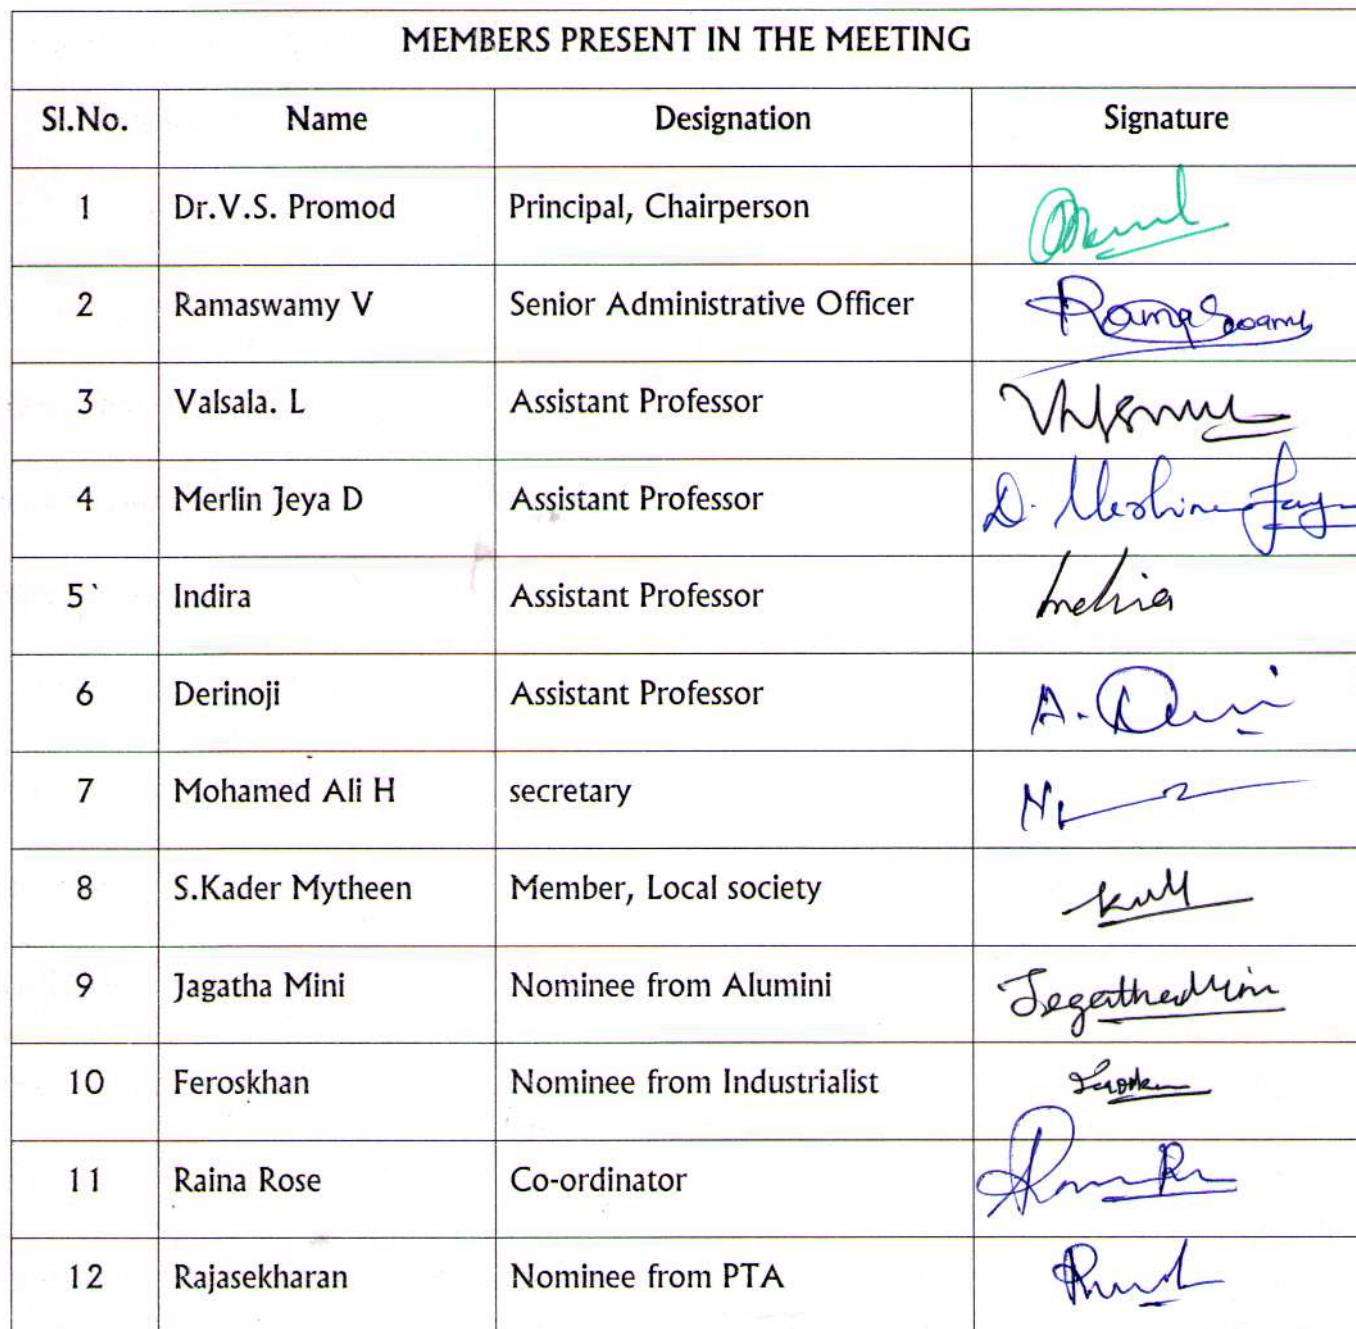 MEMBERS PRESENT IN THE MEETING
Sl.No. Name Designation Signature
1 Dr.V.S. Promod Principal, Chairperson
2 Ramaswamy V Senior Administrative Officer RamaSwamy
3 Valsala. L Assistant Professor
4 Merlin Jeya D Assistant Professor D.
5` Indira Assistant Professor Indira
6 Derinoji Assistant Professor A.
7 Mohamed Ali H secretary
8 S.Kader Mytheen Member, Local society
9 Jagatha Mini Nominee from Alumini
10 Feroskhan Nominee from Industrialist
11 Raina Rose Co-ordinator
12 Rajasekharan Nominee from PTA